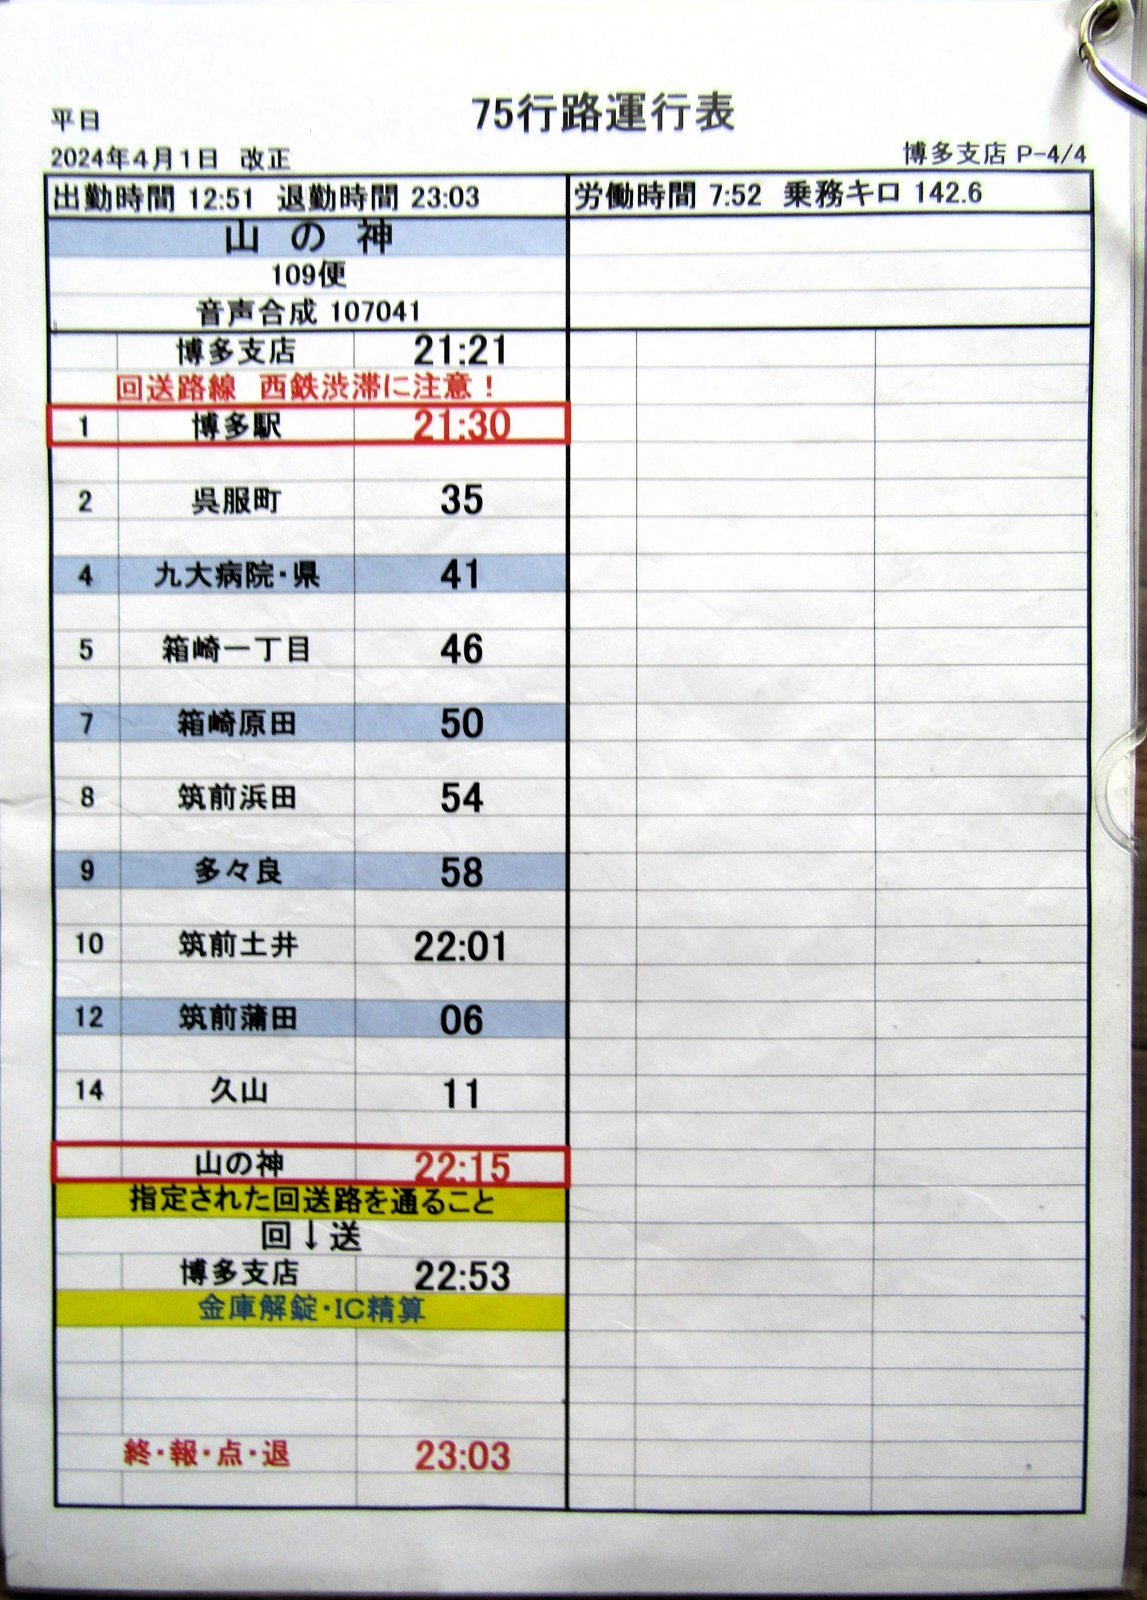 75行路運行表
平日
2024年4月1日 改正
博多支店 P-4/4
出勤時間 12:51 退勤時間 23:03 労働時間 7:52 乗務キロ 142.6
山の神
109便
音声合成 107041
博多支店 21:21
回送路線 西鉄渋滞に注意！
1 博多駅 21:30
2 呉服町 35
4 九大病院・県 41
5 箱崎一丁目 46
7 箱崎原田 50
8 筑前浜田 54
9 多々良 58
10 筑前土井 22:01
12 筑前蒲田 06
14 久山 11
山の神 22:15
指定された回送路を通ること
回↓送
博多支店 22:53
金庫解錠・IC精算
終・報・点・退 23:03